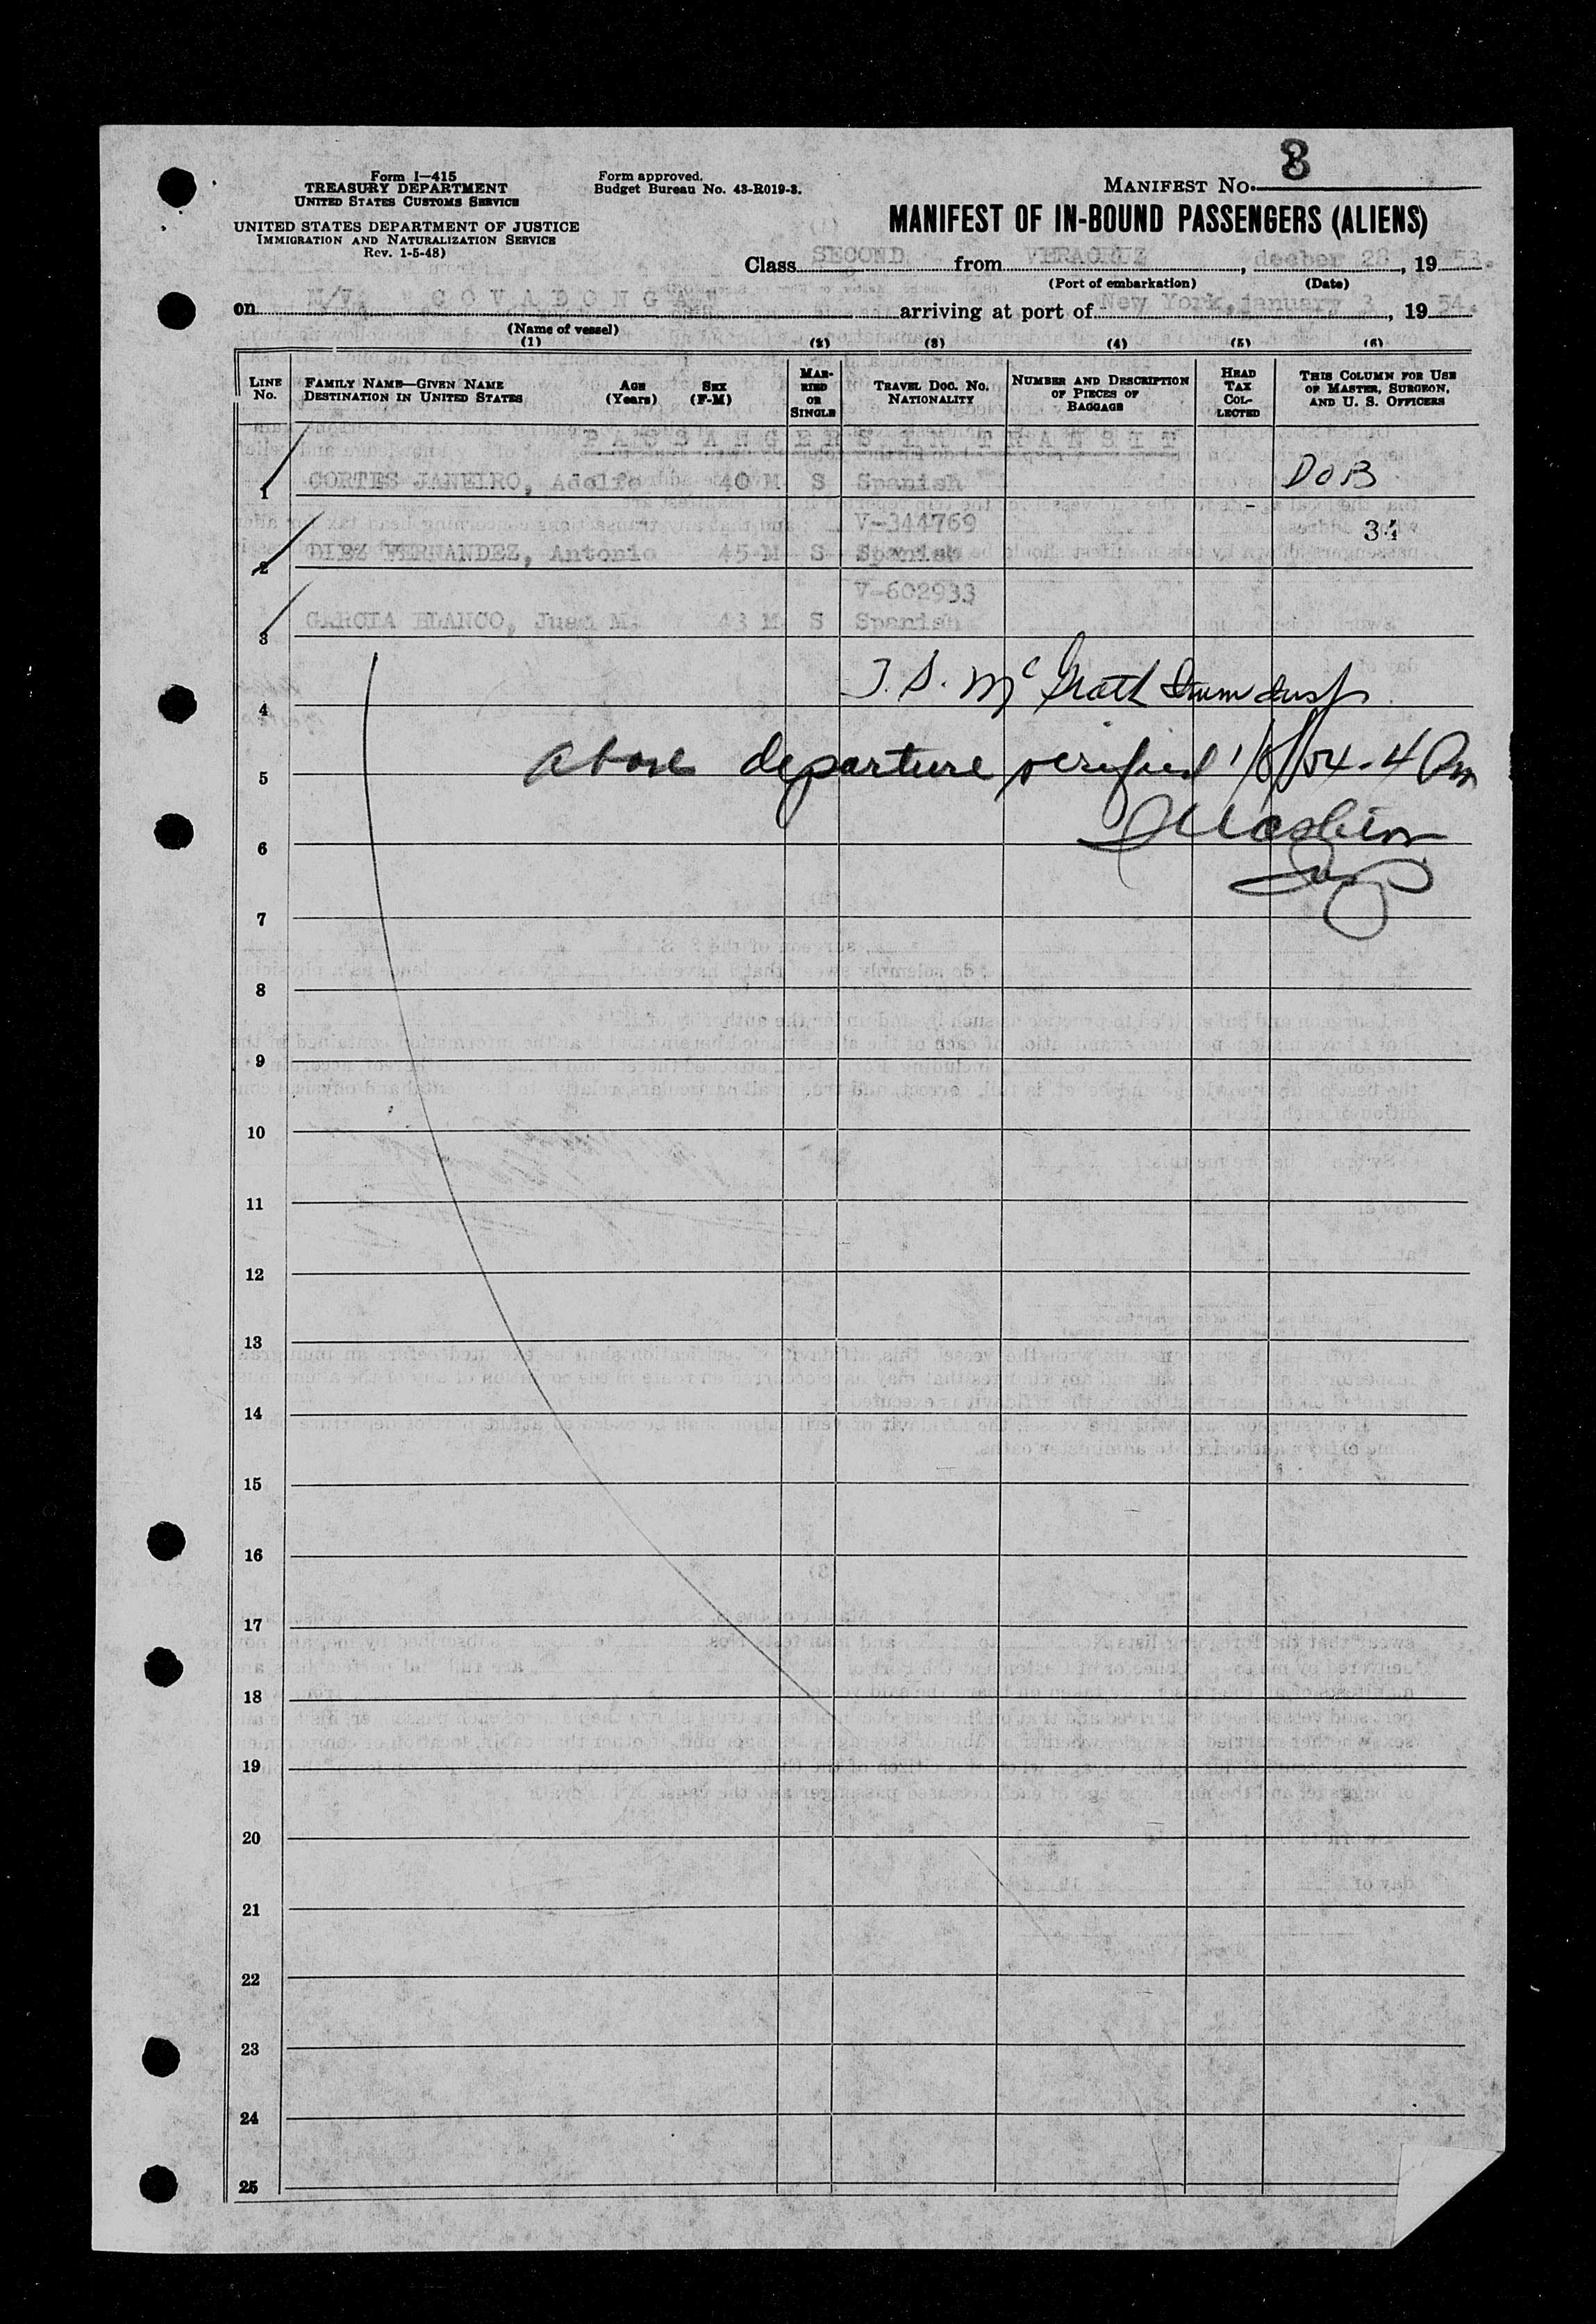 8
Form I—415
TREASURY DEPARTMENT
UNITED STATES CUSTOMS SERVICE
UNITED STATES DEPARTMENT OF JUSTICE
IMMIGRATION AND NATURALIZATION SERVICE
Rev. 1-5-48)
Form approved.
Budget Bureau No. 43-R019-3.
MANIFEST No.
MANIFEST OF IN-BOUND PASSENGERS (ALIENS)
Class SECOND from VERACRUZ, deeber 28, 19 53.
(Port of embarkation) (Date)
on M/V. COVADONGA arriving at port of New York, january 3, 19 54.
(Name of vessel)
(1) (2) (3) (4) (5) (6)
LINE No. FAMILY NAME—GIVEN NAME DESTINATION IN UNITED STATES AGE (Years) SEX (F-M) MARRIED OR SINGLE TRAVEL DOC. No. NATIONALITY NUMBER AND DESCRIPTION OF PIECES OF BAGGAGE HEAD TAX COLLECTED THIS COLUMN FOR USE OF MASTER, SURGEON, AND U. S. OFFICERS
PASSANGERS IN TRANSIT
1 CORTES JANEIRO, Adolfo 40 M S Spanish DOB
V-344769 34
2 DIEZ FERNANDEZ, Antonio 45 M S Spanish
V-602933
3 GARCIA BLANCO, Juan M. 43 M S Spanish
4 T. S. McGrath Immn Insp
5 above departure verified
6
7
8
9
10
11
12
13
14
15
16
17
18
19
20
21
22
23
24
25